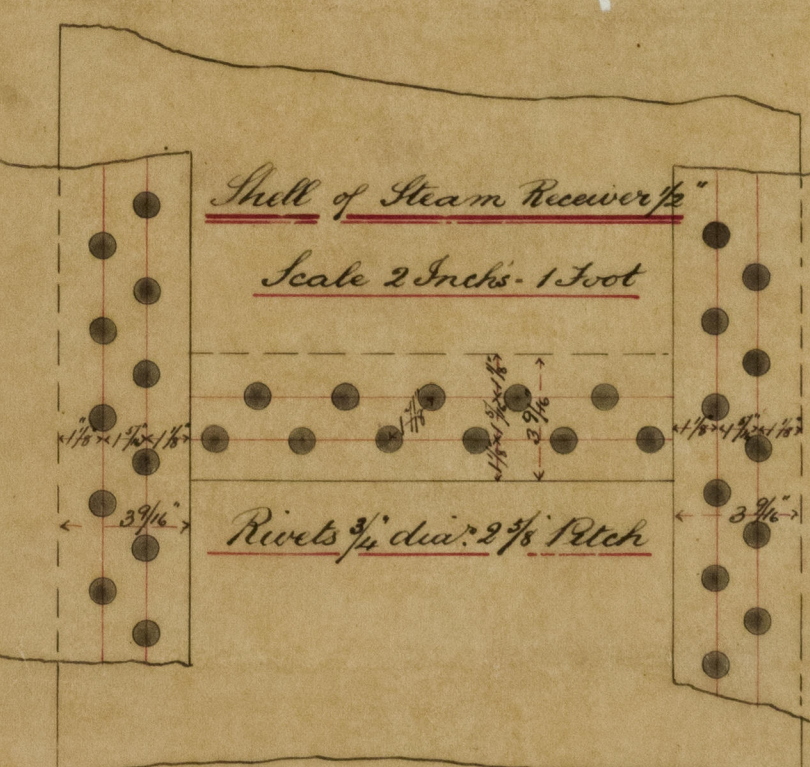 Shell of Steam Receiver 1/2"
Scale 2 Inch's - 1 Foot
1 1/8" 1 5/16 1 1/8"
3 9/16"
1 1/8 1 5/16 1 1/8"
3 9/16
1 1/8 1 5/16 1 1/8"
3 9/16"
Rivets 3/4 dia: 2 5/8 Pitch